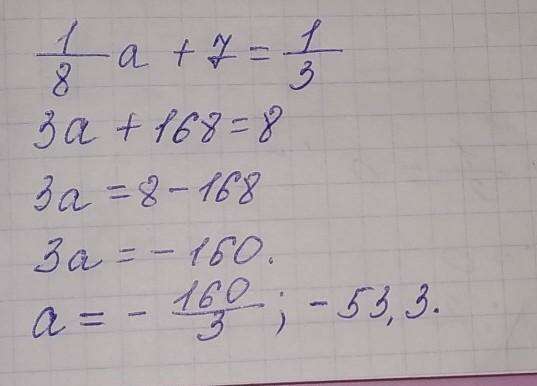 1/8 a + 7 = 1/3
3a + 168 = 8
3a = 8 - 168
3a = - 160.
a = - 160/3 ; - 53,3.